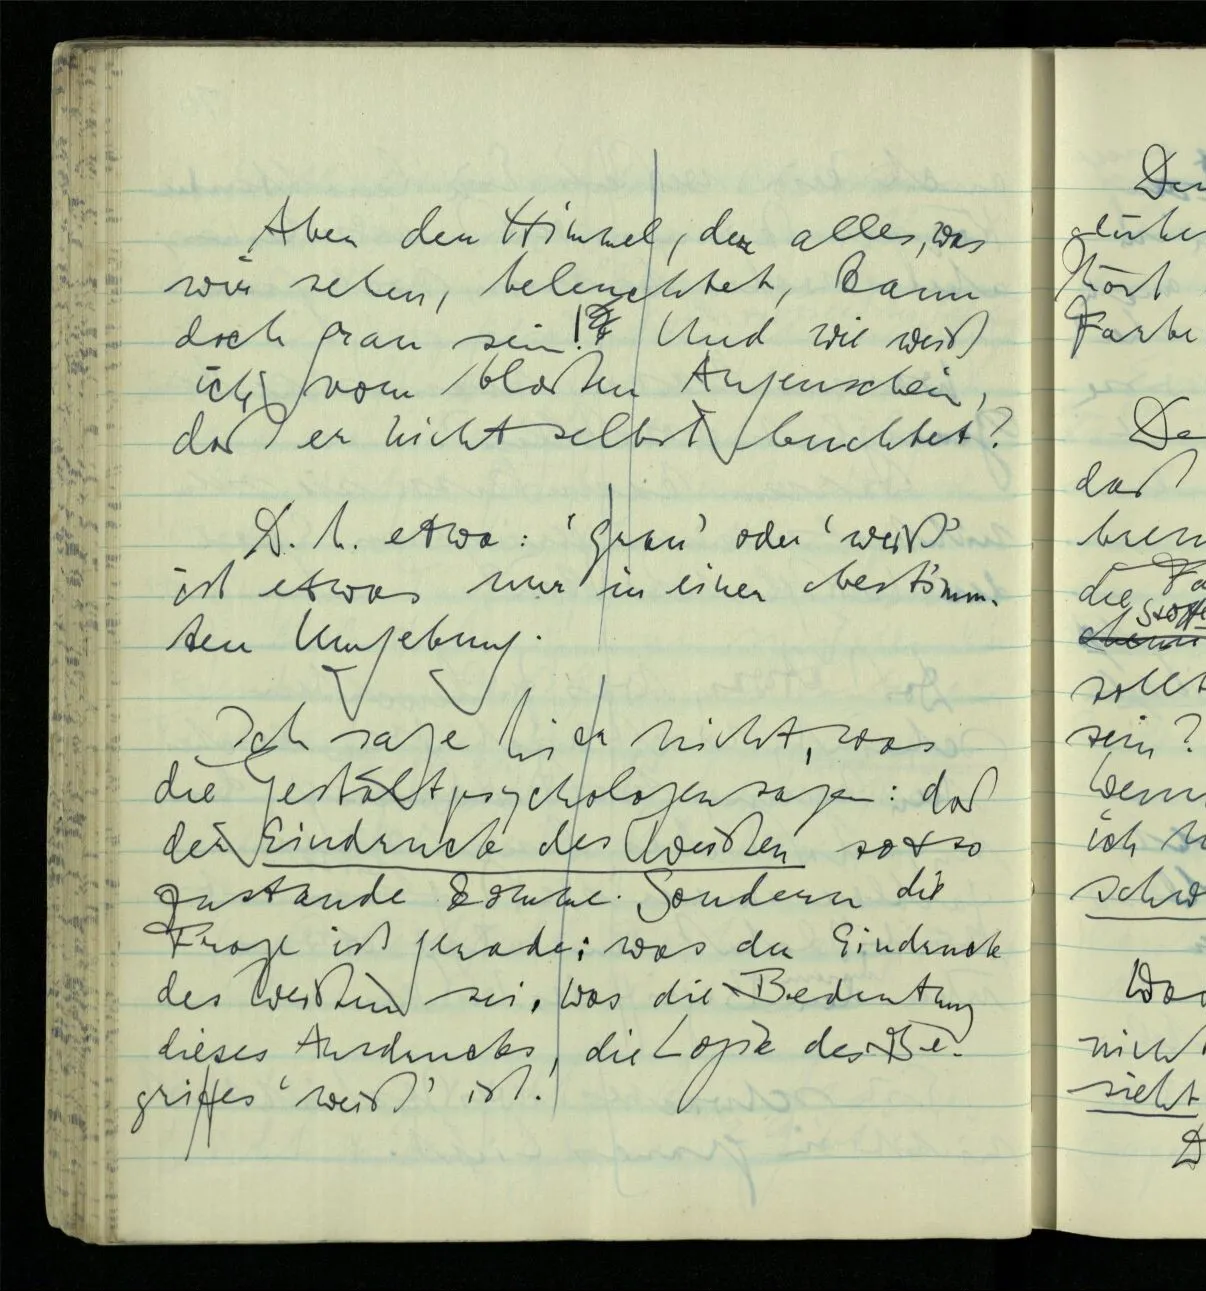 Aber der Himmel, der alles, was
wir sehen, beleuchtet, kann
doch grau sein! Und wie weiß
ich vom bloßen Augenschein,
daß er nicht selbst leuchtet?
D. h. etwa: 'grau' oder 'weiß'
ist etwas nur in einer bestimm-
ten Umgebung.
Ich sage hier nicht, was
die Gestaltpsychologen sagen: daß
der Eindruck des Weißen so & so
zustande komme. Sondern die
Frage ist gerade: was der Eindruck
des Weißen sei, was die Bedeutung
dieses Ausdrucks, die Logik des Be-
griffes 'weiß' ist.
Farbe
daß
die
sollt
sein?
ich
schw
nicht
sieht